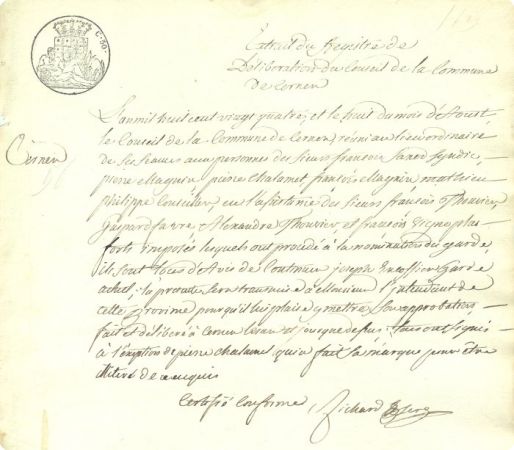 C. 50.
Extrait du Registre de
Délibération du Conseil de la Commune
de Cernex
L'an mil huit cent vingt quatre, et le huit du mois d'Aoust
le Conseil de la Commune de Cernex, réuni au lieu ordinaire
Cernex
de ses séances aux personnes des sieurs françois syndic,
pierre Magnin, pierre Chalamet, françois Magnin, mathieu
philippe Conseiller, en l'assistance des sieurs françois Thouvier,
Gaspard favre, Alexandre Thouvier, et françois plus
forts imposés lesquels ont procédé à la nomination du garde,
ils sont tous d'Avis de Continuer joseph Garde
actuel, la présente sera transmise à Monsieur l'intendant de
cette province pour qu'il lui plaise y mettre son approbation,
fait et délibéré à Cernex l'an et jour que dessus. tous ont signé
à l'éxeption de pierre Chalamet qui a fait sa marque pour être
illitéré de ce acquis
Certifié Conforme Richard